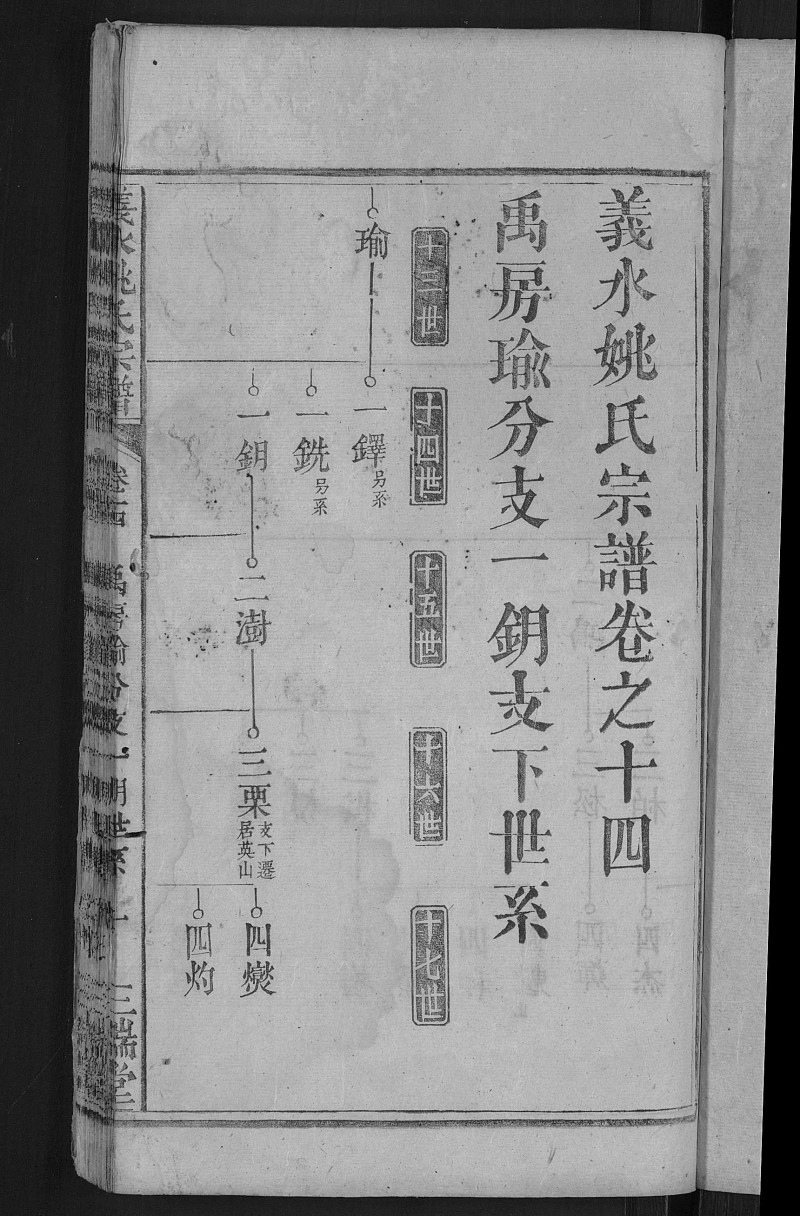 義水姚氏宗譜卷之十四
禹房瑜分支一鈅支下世系
十三世
十四世
十五世
十六世
十七世
瑜
一鐸 另系
一銑 另系
一鈅
二澍
三栗 支下遷居英山
四燮
四灼
義水姚氏宗譜
卷十四
禹房瑜分支一鈅世系
一
三瑞堂